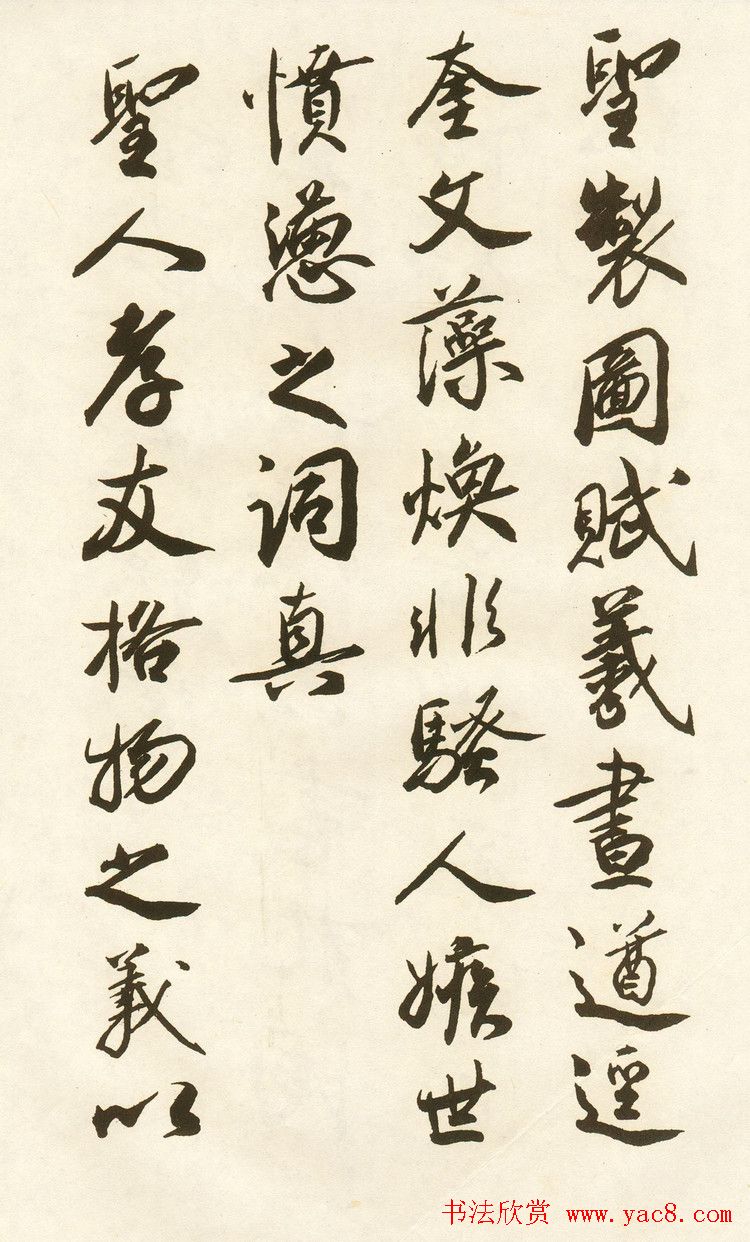 聖製圖賦羲畫遒逕
奎文藻煥非騷人嫉世
憤懣之詞真
聖人孝友格物之義以
书法欣赏 www.yac8.com